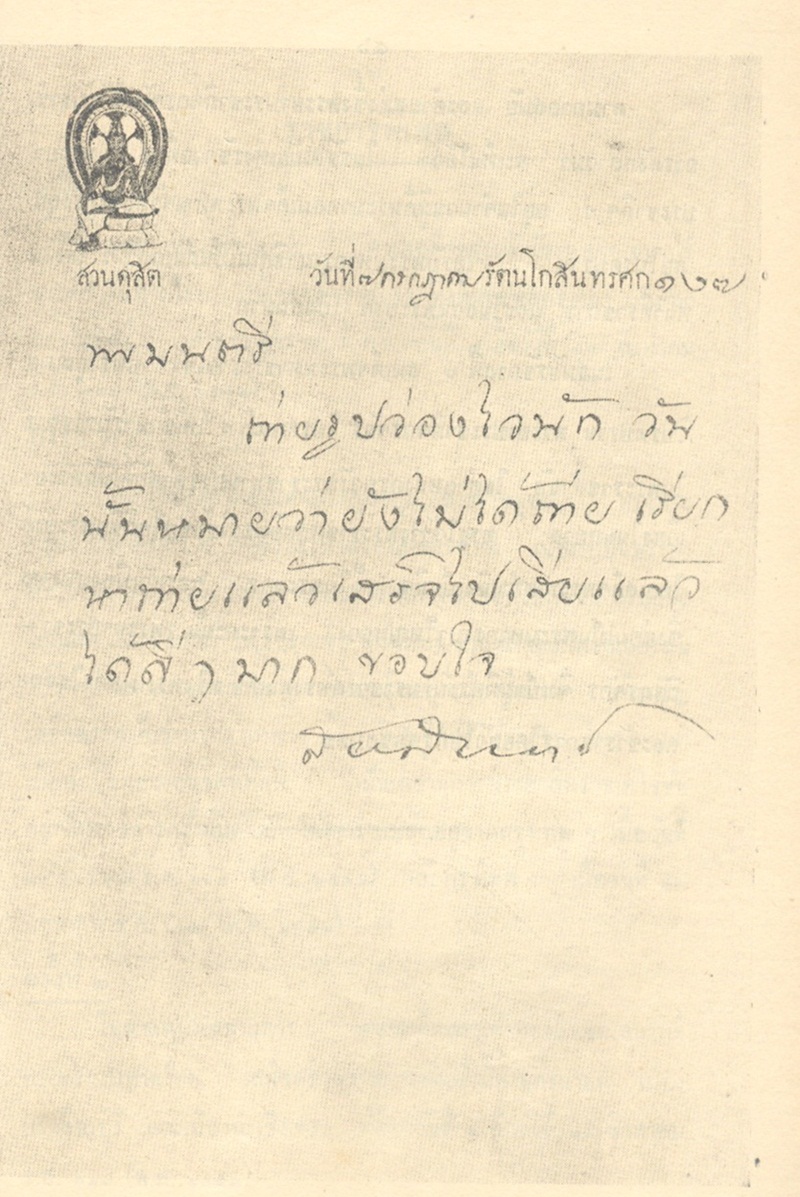 สวนดุสิต
วันที่ ๗ กรกฎาคม รัตนโกสินทรศก ๑๒๗
พระมนตรี
ถ่ายรูปว่องไวนัก วัน
นั้นหมายว่ายังไม่ได้ถ่าย เรียก
หาถ่ายแล้วเสร็จไปเสียแล้ว
ได้ดี ๆ มาก ขอบใจ
สยามินทร์